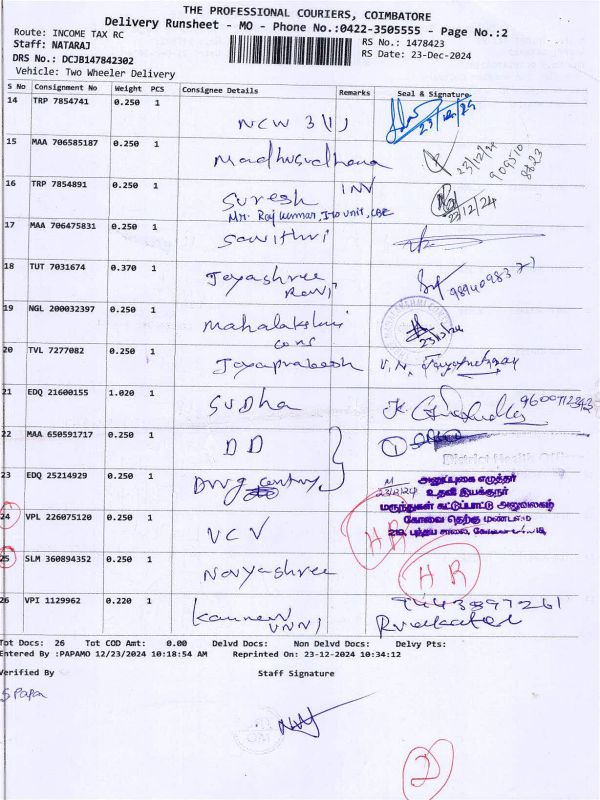 THE PROFESSIONAL COURIERS, COIMBATORE
Delivery Runsheet - MO - Phone No.:0422-3505555 - Page No.:2
Route: INCOME TAX RC
RS No.: 1478423
Staff: NATARAJ
RS Date: 23-Dec-2024
DRS No.: DCJB147842302
Vehicle: Two Wheeler Delivery
S No Consignment No Weight PCS Consignee Details Remarks Seal & Signature
14 TRP 7854741 0.250 1
23/12/24
15 MAA 706585187 0.250 1 Madhusudhana
23/12/24
909510
8823
16 TRP 7854891 0.250 1 Suresh INV
Mr. Raj kumar, ITO unit, CBE
23/12/24
17 MAA 706475831 0.250 1 Sawithri
18 TUT 7031674 0.370 1 Jeyashree
Ravi
19 NGL 200032397 0.250 1 Mahalakshmi
cons
23/12/24
20 TVL 7277082 0.250 1 Jeyaprakash
21 EDQ 21600155 1.020 1 SUDha
22 MAA 650591717 0.250 1 DD
District Health
23 EDQ 25214929 0.250 1 Drug
23/12/24
அனுப்புகை எழுத்தர்
உதவி இயக்குநர்
மருந்துகள் கட்டுப்பாட்டு அலுவலகம்
கோவை தெற்கு மண்டலம்
24 VPL 226075120 0.250 1 VCV
HR
25 SLM 360894352 0.250 1 Navyashree
HR
26 VPI 1129962 0.220 1
Tot Docs: 26 Tot COD Amt: 0.00 Delvd Docs: Non Delvd Docs: Delvy Pts:
Entered By :PAPAMO 12/23/2024 10:18:54 AM Reprinted On: 23-12-2024 10:34:12
Verified By Staff Signature
S Papa
2